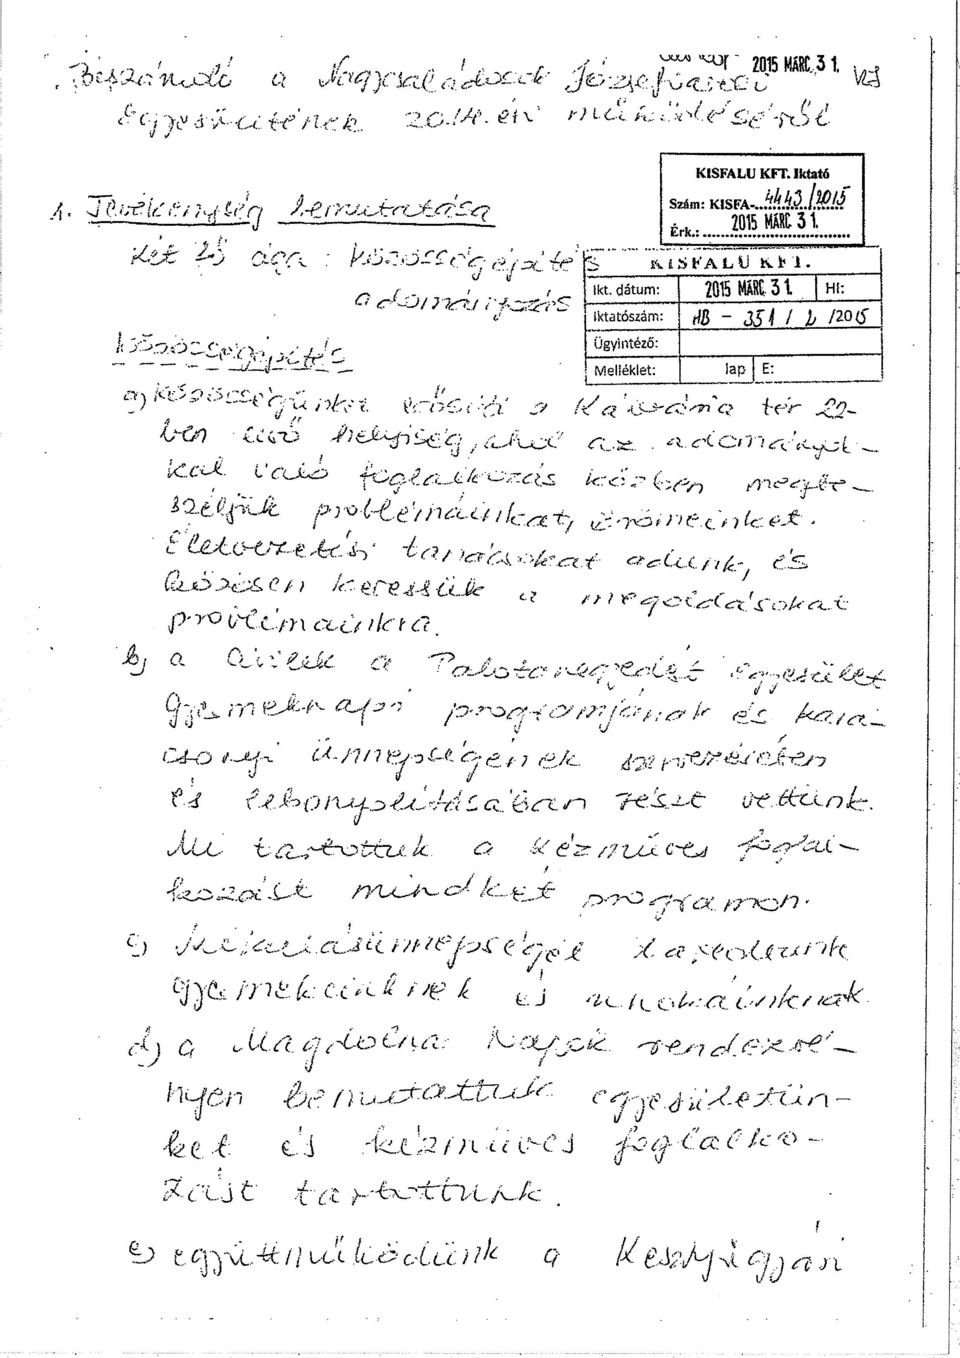 2015 MÁRC. 31.
Beszámoló a Nagycsaládosok Józsefvárosi
Egyesületének 2014. évi működéséről
KISFALU KFT. Iktató
Szám: KISFA-...4443/2015
Érk.: 2015 MÁRC 31.
1. Tevékenység bemutatása
Két fő ága: közösségépítés
adományozás
KISFALU KFT.
Ikt. dátum: 2015 MÁRC. 31. HI:
Iktatószám: HB - 351 / 2 /2015
Ügyintéző:
Melléklet: lap E:
közösségépítés
a) közösségünket erősíti a Kálvária tér 22-
ben lévő helyiség, ahol az adományok-
kal való foglalkozás közben megbe-
széljük problémáinkat, örömeinket.
Életvezetési tanácsokat adunk, és
közösen keressük a megoldásokat
problémáinkra.
b) a Civilek a Palotanegyedért Egyesület
Gyermeknapi programjának és kará-
csonyi ünnepségének szervezésében
és lebonyolításában részt vettünk.
Mi tartottuk a kézműves foglal-
kozást mindkét programon.
c) Mikulásünnepséget rendeztünk
gyermekeinknek és unokáinknak
d) a Magdolna Napok rendezvé-
nyen bemutattuk egyesületün-
ket és kézműves foglalko-
zást tartottunk.
e) együttműködünk a Kesztyűgyári